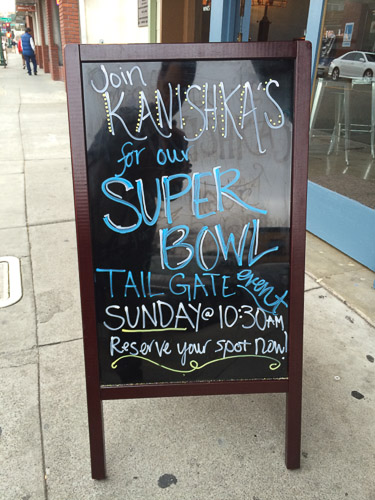 Join
KANISHKA'S
for our
SUPER
BOWL
TAIL GATE event
SUNDAY @ 10:30AM
Reserve your spot now!